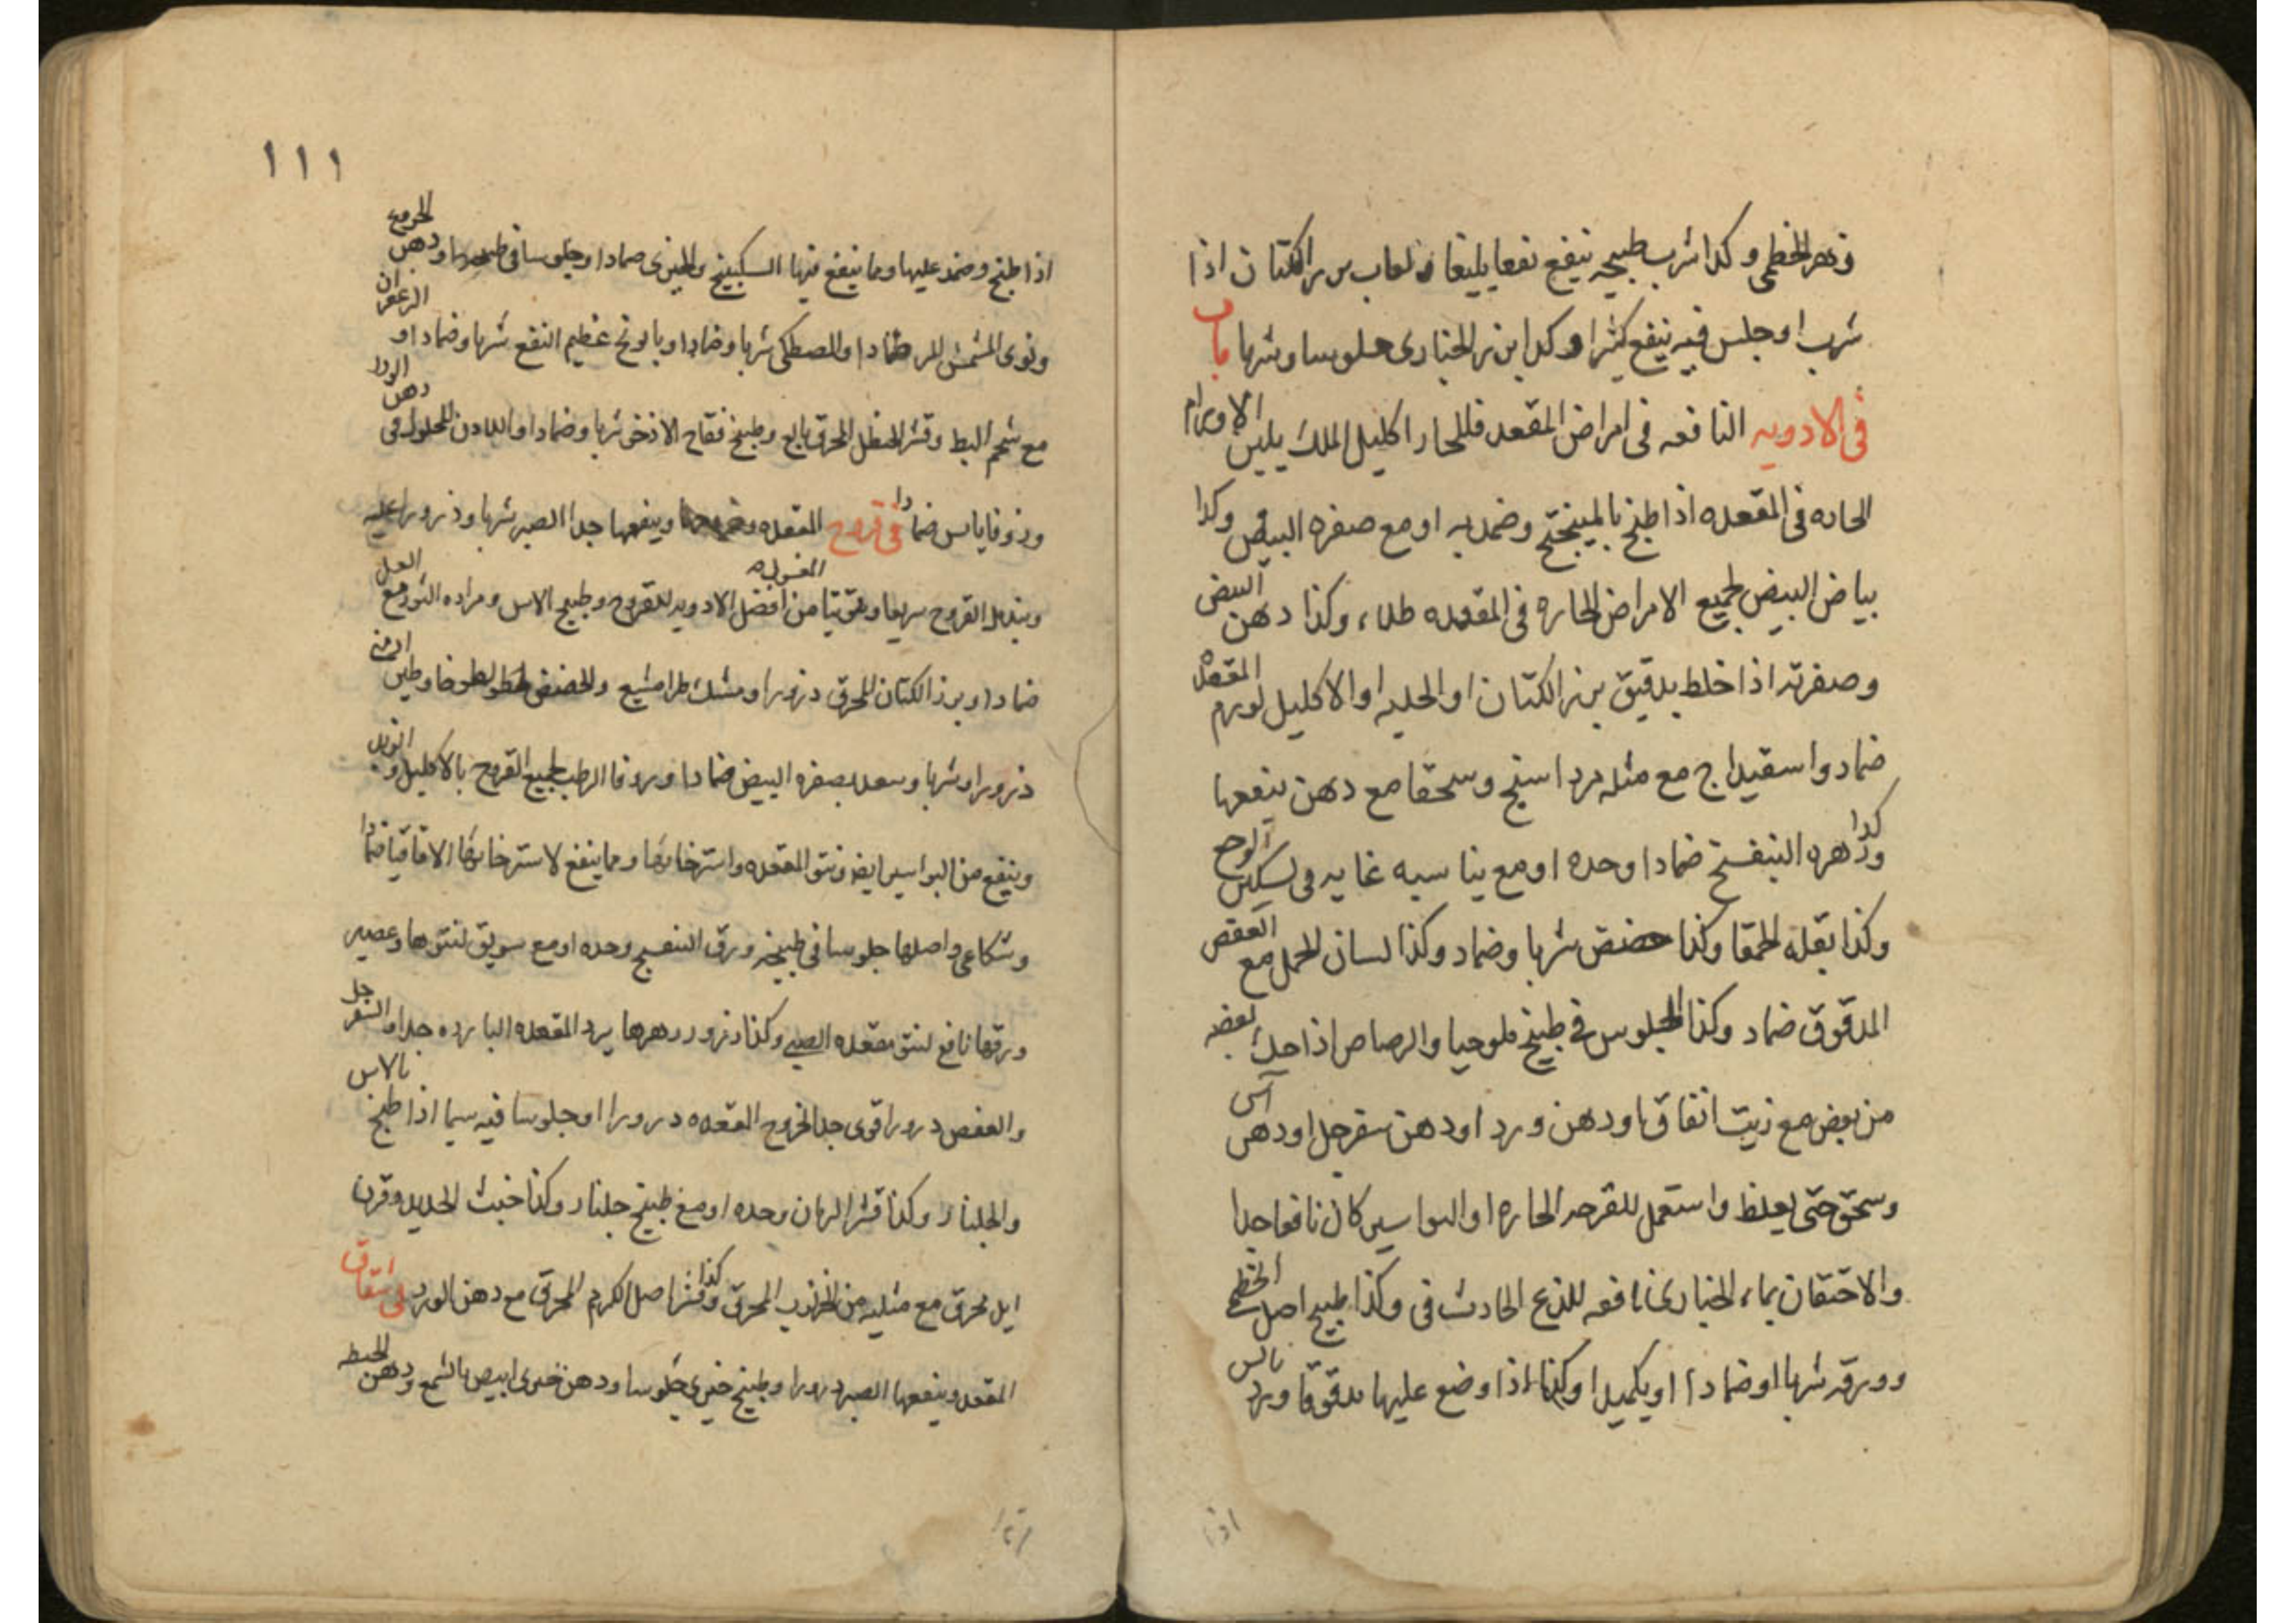 وزهر الخطمى وكذا شرب طبيخه ينفع نفعا بليغا ولعاب بزر الكتان اذا
شرب او جلس فيه ينفع كثيرا وكذا بزر الخبازى جلوسا وشربا باب
فى الادويه النافعه فى امراض المقعد فللحار اكليل الملك يلين الاورام
الحاره فى المقعده اذا طبخ بالمبيختج وضمد به او مع صفره البيض وكذا
بياض البيض لجميع الامراض الحاره فى المقعده طلاء وكذا دهن البيض
وصفرته اذا خلط بدقيق بزر الكتان او الحلبه او الاكليل لورم المقعده
ضماد واسفيداج مع مثله مرداسنج وسحقا مع دهن ينفعها
وكذا زهره البنفسج ضمادا وحده او مع يناسبه غايه فى تسكين الوجع
وكذا بقله الحمقا وكذا حضض شربا وضماد وكذا لسان الحمل مع العفص
المدقوق ضماد وكذا الجلوس فى طبيخ ملوحيا والرصاص اذا حك بعضه
من بعض مع زيت انفاق او دهن ورد او دهن سفرجل او دهن آس
وسحق حتى يغلظ واستعمل للقرحه الحاره او البواسير كان نافعا جدا
والاحتقان بماء الخبازى نافعه للذع الحادث فى وكذا طبيخ اصل الخطمى
وورقه شربا او ضمادا او يكميدا وكذا اذا وضع عليها مدقوقا وبرد
اذا
١١١
اذا طبخ وضمد عليها ومما ينفع فيها السكبينج والخيرى ضمادا وجلوسا فى طبيخها ودهن الخروع
ونوى المشمش المر ضمادا والمصطكى شربا وضمادا وبابونج عظيم النفع شربا وضمادا او الزعفران
مع شحم البط وقشر الحنظل المحرق وطبيخ فقاح الاذخر شربا وضمادا واللادن المحلول فى دهن الورد
وزوفا يابس ضمادا فى قروح المقعده وينفعها جدا الصبر شربا وذرورا عليه
ويندمل القروح سريعا وتوتيا المغسوله من افضل الادويه للقروح وطبيخ الاس ومراره الثور مع العسل
ضمادا وبزر الكتان المحرق ذرورا ومشك طرا مشيع والحضض لطوخا وطين ارمنى
ذرورا وشربا بصفره البيض ضمادا وزوفا الرطب لجميع القروح بالاكليل و
وينفع من البواسير ايضا ونتو المقعده واسترخائها ومما ينفع لاسترخائها الاقاقيا ضمادا
وشكاعى واصلها جلوسا فى طبيخه ورق البنفسج وحده او مع سويق لنتوها وعصير
ورقها نافع لنتو مقعده الصبى وكذا ذرور زهرها يرد المقعده البارده جدا والسفرجل
والعفص ذرورا قوى جدا لخروج المقعده ذرورا او جلوسا فيه سيما اذا طبخ بالاس
والجلنار وكذا قشر الرمان وحده او مع طبيخ جلنار وكذا خبث الحديد وقرن
ايل محرق مع مثليه من الخرنوب المحرق وكذا قشر اصل الكرم المحرق مع دهن الورد فى شقاق
المقعد وينفعها الصبر ذرورا وطبيخ خيرى جلوسا ودهن خيرى ابيض بالشمع ودهن الحنطه